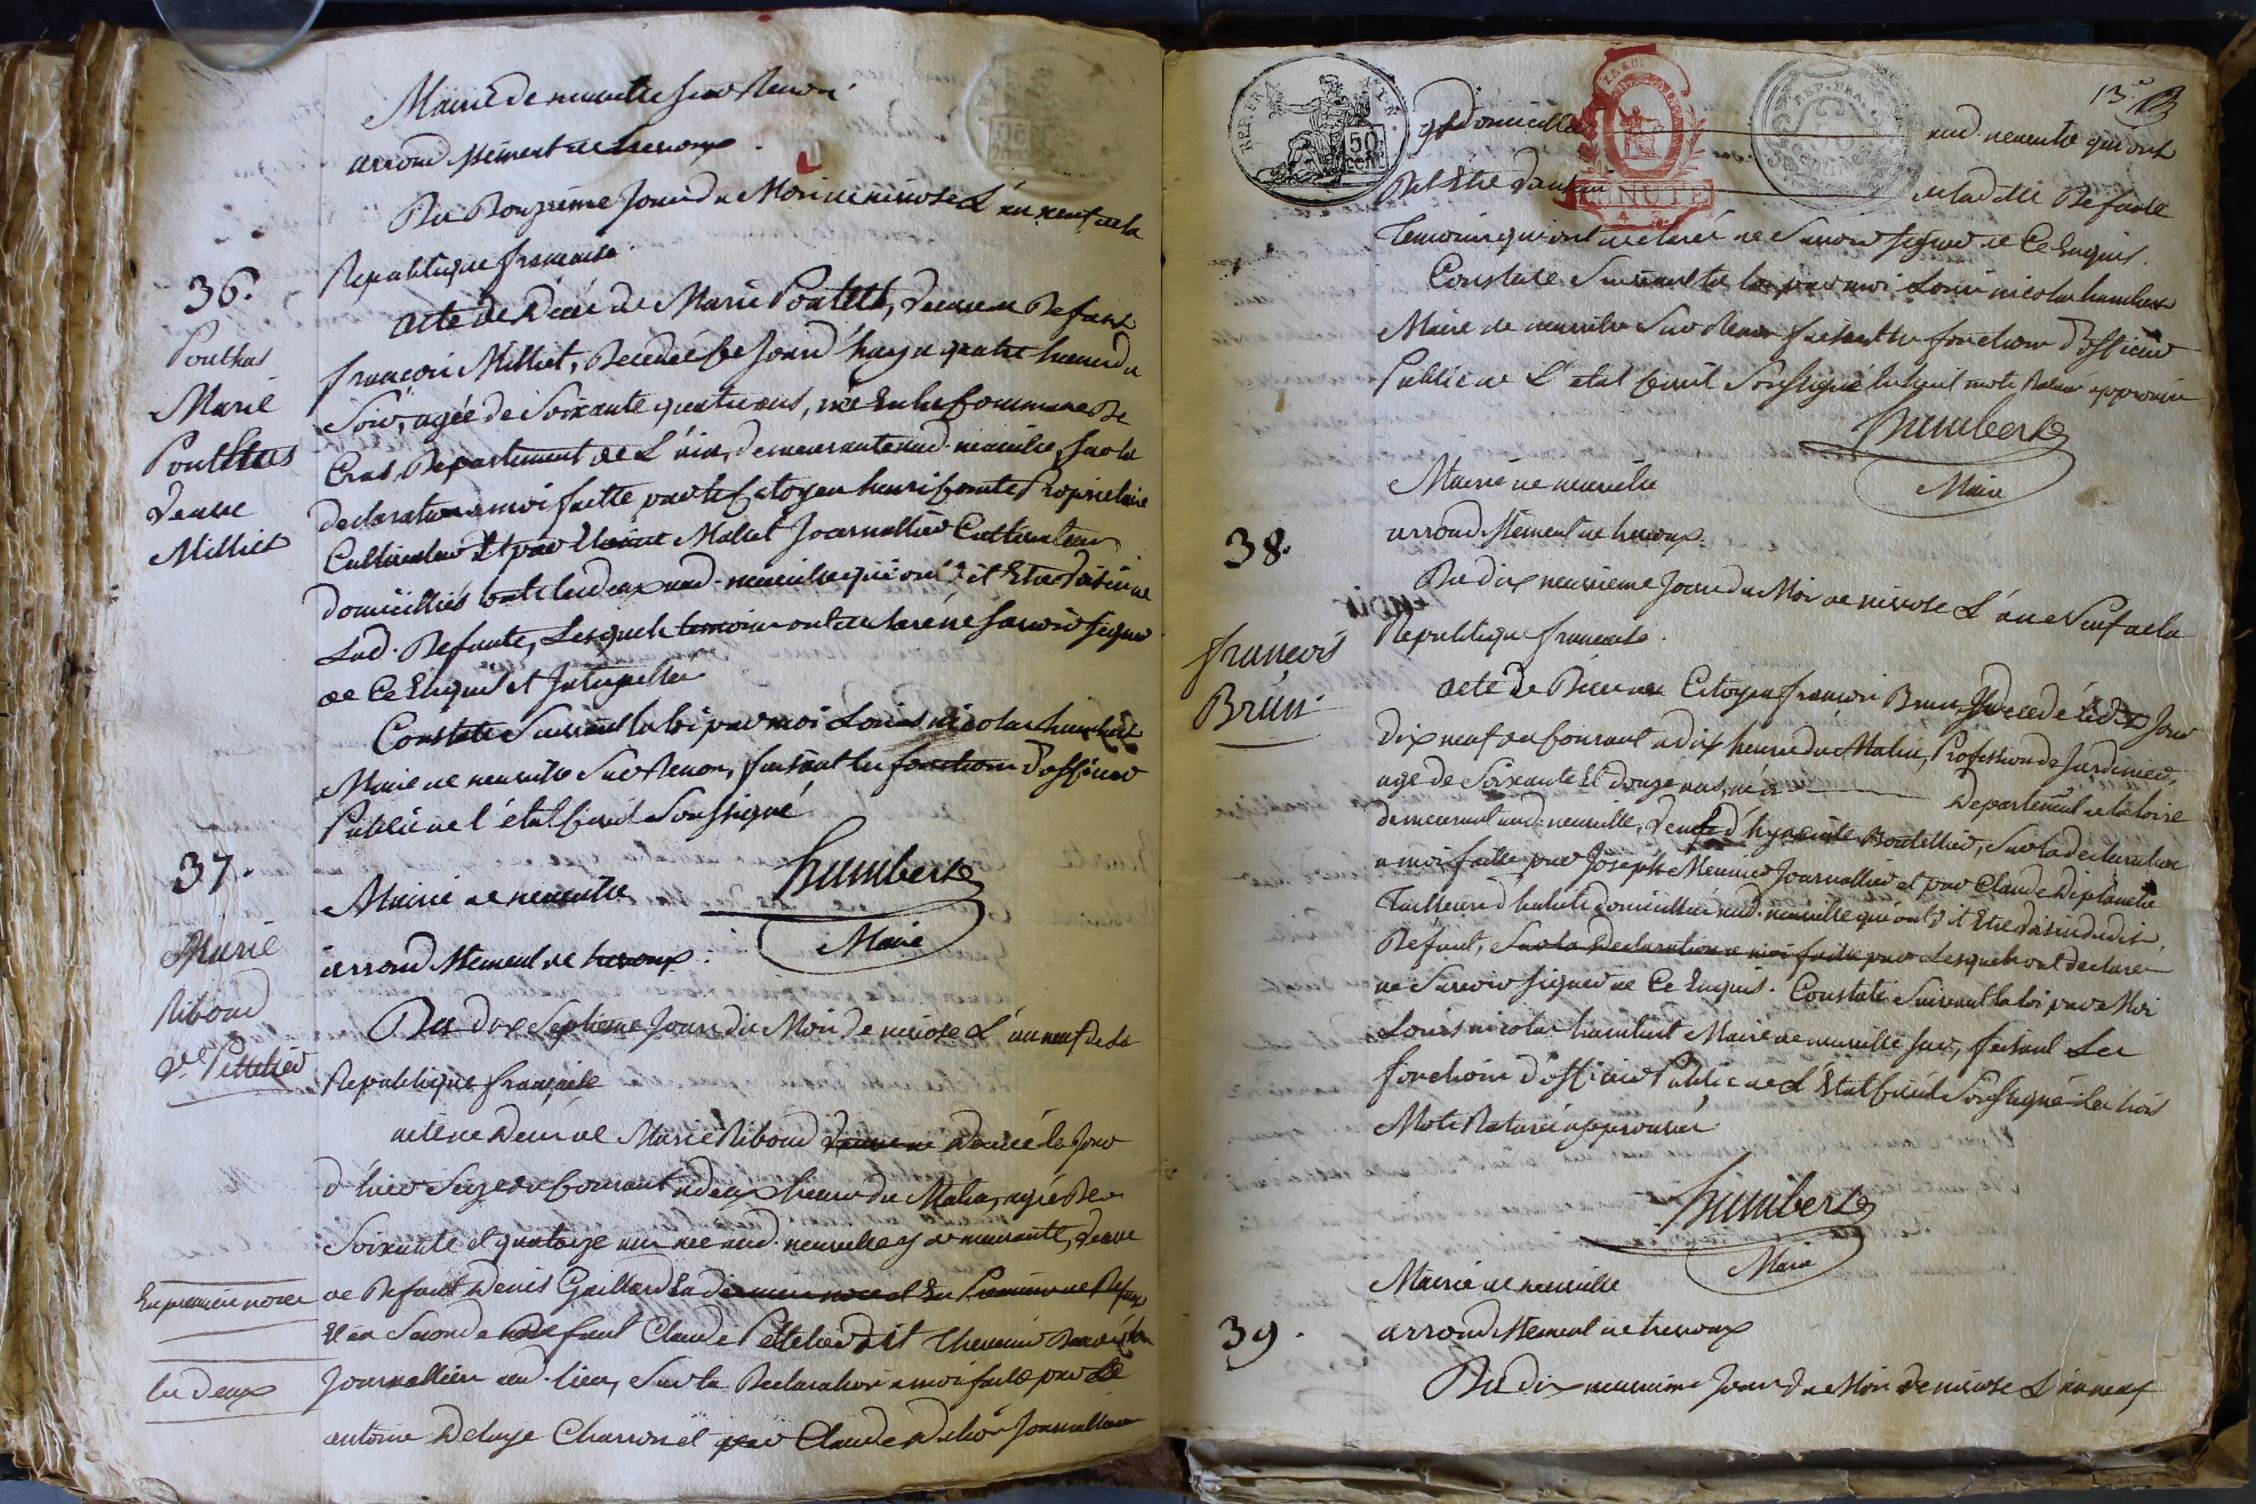 Mairie de neuville sur Renon
arrondissement de trevoux
Du Douzieme Jour du Mois de nivose L'an neuf de la
Republique francaise
36.
Pouthus
Marie
Pouthus
veuve
Milliet
acte de Décé de Marie veuve de Defunt
françois Milliet, Decedée le Jour d'huy a quatre heures du
Soir, agée de Soixante quatre ans, née En la Commune De
Cras Departement de L'ain, demeurante aud. neuville, Sur la
declaration a moi faitte par le Citoyen henri Comte Proprietaire
Cultivateur Et par Maliet Journallier Cultivateur
domicilliés touts les deux aud. neuville qui ont dit Etre voisin de
Lad. Defunte, Lesquels temoins ont declaré ne Savoir Signer
de Ce Enquis et Interpellés
Constaté Suivant la loi par moi Louis nicolas humbert
Maire de neuville Sur Renon, faisant les fonctions D'officier
Public de l'état Civil Soussigné
humbert
Maire
37.
Marie
Riboud
Ve. Pettelier
Mairie de neuville
arrondissement de trevoux
Du dix Septieme Jour du Mois de nivose L'an neuf de La
Republique française
acte de Décé de Marie Riboud veuve de Decedé le Jour
d'hier Seize du Courant a deux heures du Matin, agée De
Soixante et quatorze ans née aud. neuville y demeurante, veuve
En premier noces
de Defunt Denis Gaillard En
Et en Seconde de Defunt Claude Pettelier dit
les deux
Journalliers aud. lieu, Sur la Declaration a moi faite par Le
antoine Deluye Charron et par Claude Journallier
REP. FRA.
50
cent
13e
domicillés aud. neuville qui ont
Dit Etre voisin de la ditte Defunte
MINUTE
Temoins qui ont declaré ne Savoir Signer de Ce Enquis.
Constaté Suivant la loi par moi Louis nicolas humbert
Maire de neuville Sur Renon faisant les fonctions D'officier
Public de L'etat Civil Soussigné les huit mots Raturés approuvés
humbert
Maire
Mairie de neuville
38.
arrondissement de trevoux
Du dix neuvieme Jour du Mois de nivose L'an Neuf de la
Republique francaise.
françois
Brun
acte de Décé de Citoyen françois Brun, decedé le Jour
dix neuf du Courant a dix heures du Matin, Profession de Jardinier,
agé de Soixante Et douze ans, né a Departement de la loire
demeurant aud. neuville, veuf d'hyacinthe Boutellier, Sur la declaration
a moi faitte par Joseph Meunier Journallier et par Claude Deplanche
Tailleur d'habits domicilliés aud. neuville qui ont dit Etre voisin dudit
Defunt, Sur la Declaration a moi faitte par Lesquels ont declaré
ne Savoir Signer de Ce Enquis. Constaté Suivant la loi par Moi
Louis nicolas humbert Maire de neuville Sur, faisant Les
fonctions d'officier Public de L'Etat Civil Soussigné Les trois
Mots Raturés approuvés
humbert
Maire
Mairie de neuville
39.
arrondissement de trevoux
Du dix neuvieme Jour du Mois de nivose L'an neuf